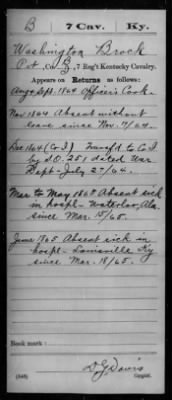 B 7 Cav. Ky.
Washington Brock
Pvt, Co. G, 7 Reg't Kentucky Cavalry.
Appears on Returns as follows:
Aug & Sept. 1864 Officer's Cook.
Nov 1864 Absent without
leave since Nov. 4/64.
Dec 1864 (Co. I) Transf'd to Co. I
by S.O. 251 dated War
Dept. July 27/64.
Mar to May 1865 Absent sick
in hospl- Waterloo, Ala.
since Mar. 15/65.
June 1865 Absent sick in
hospl- Louisville Ky
since Mar. 18/65.
Book mark:
(546)
D G Davis
Copyist.